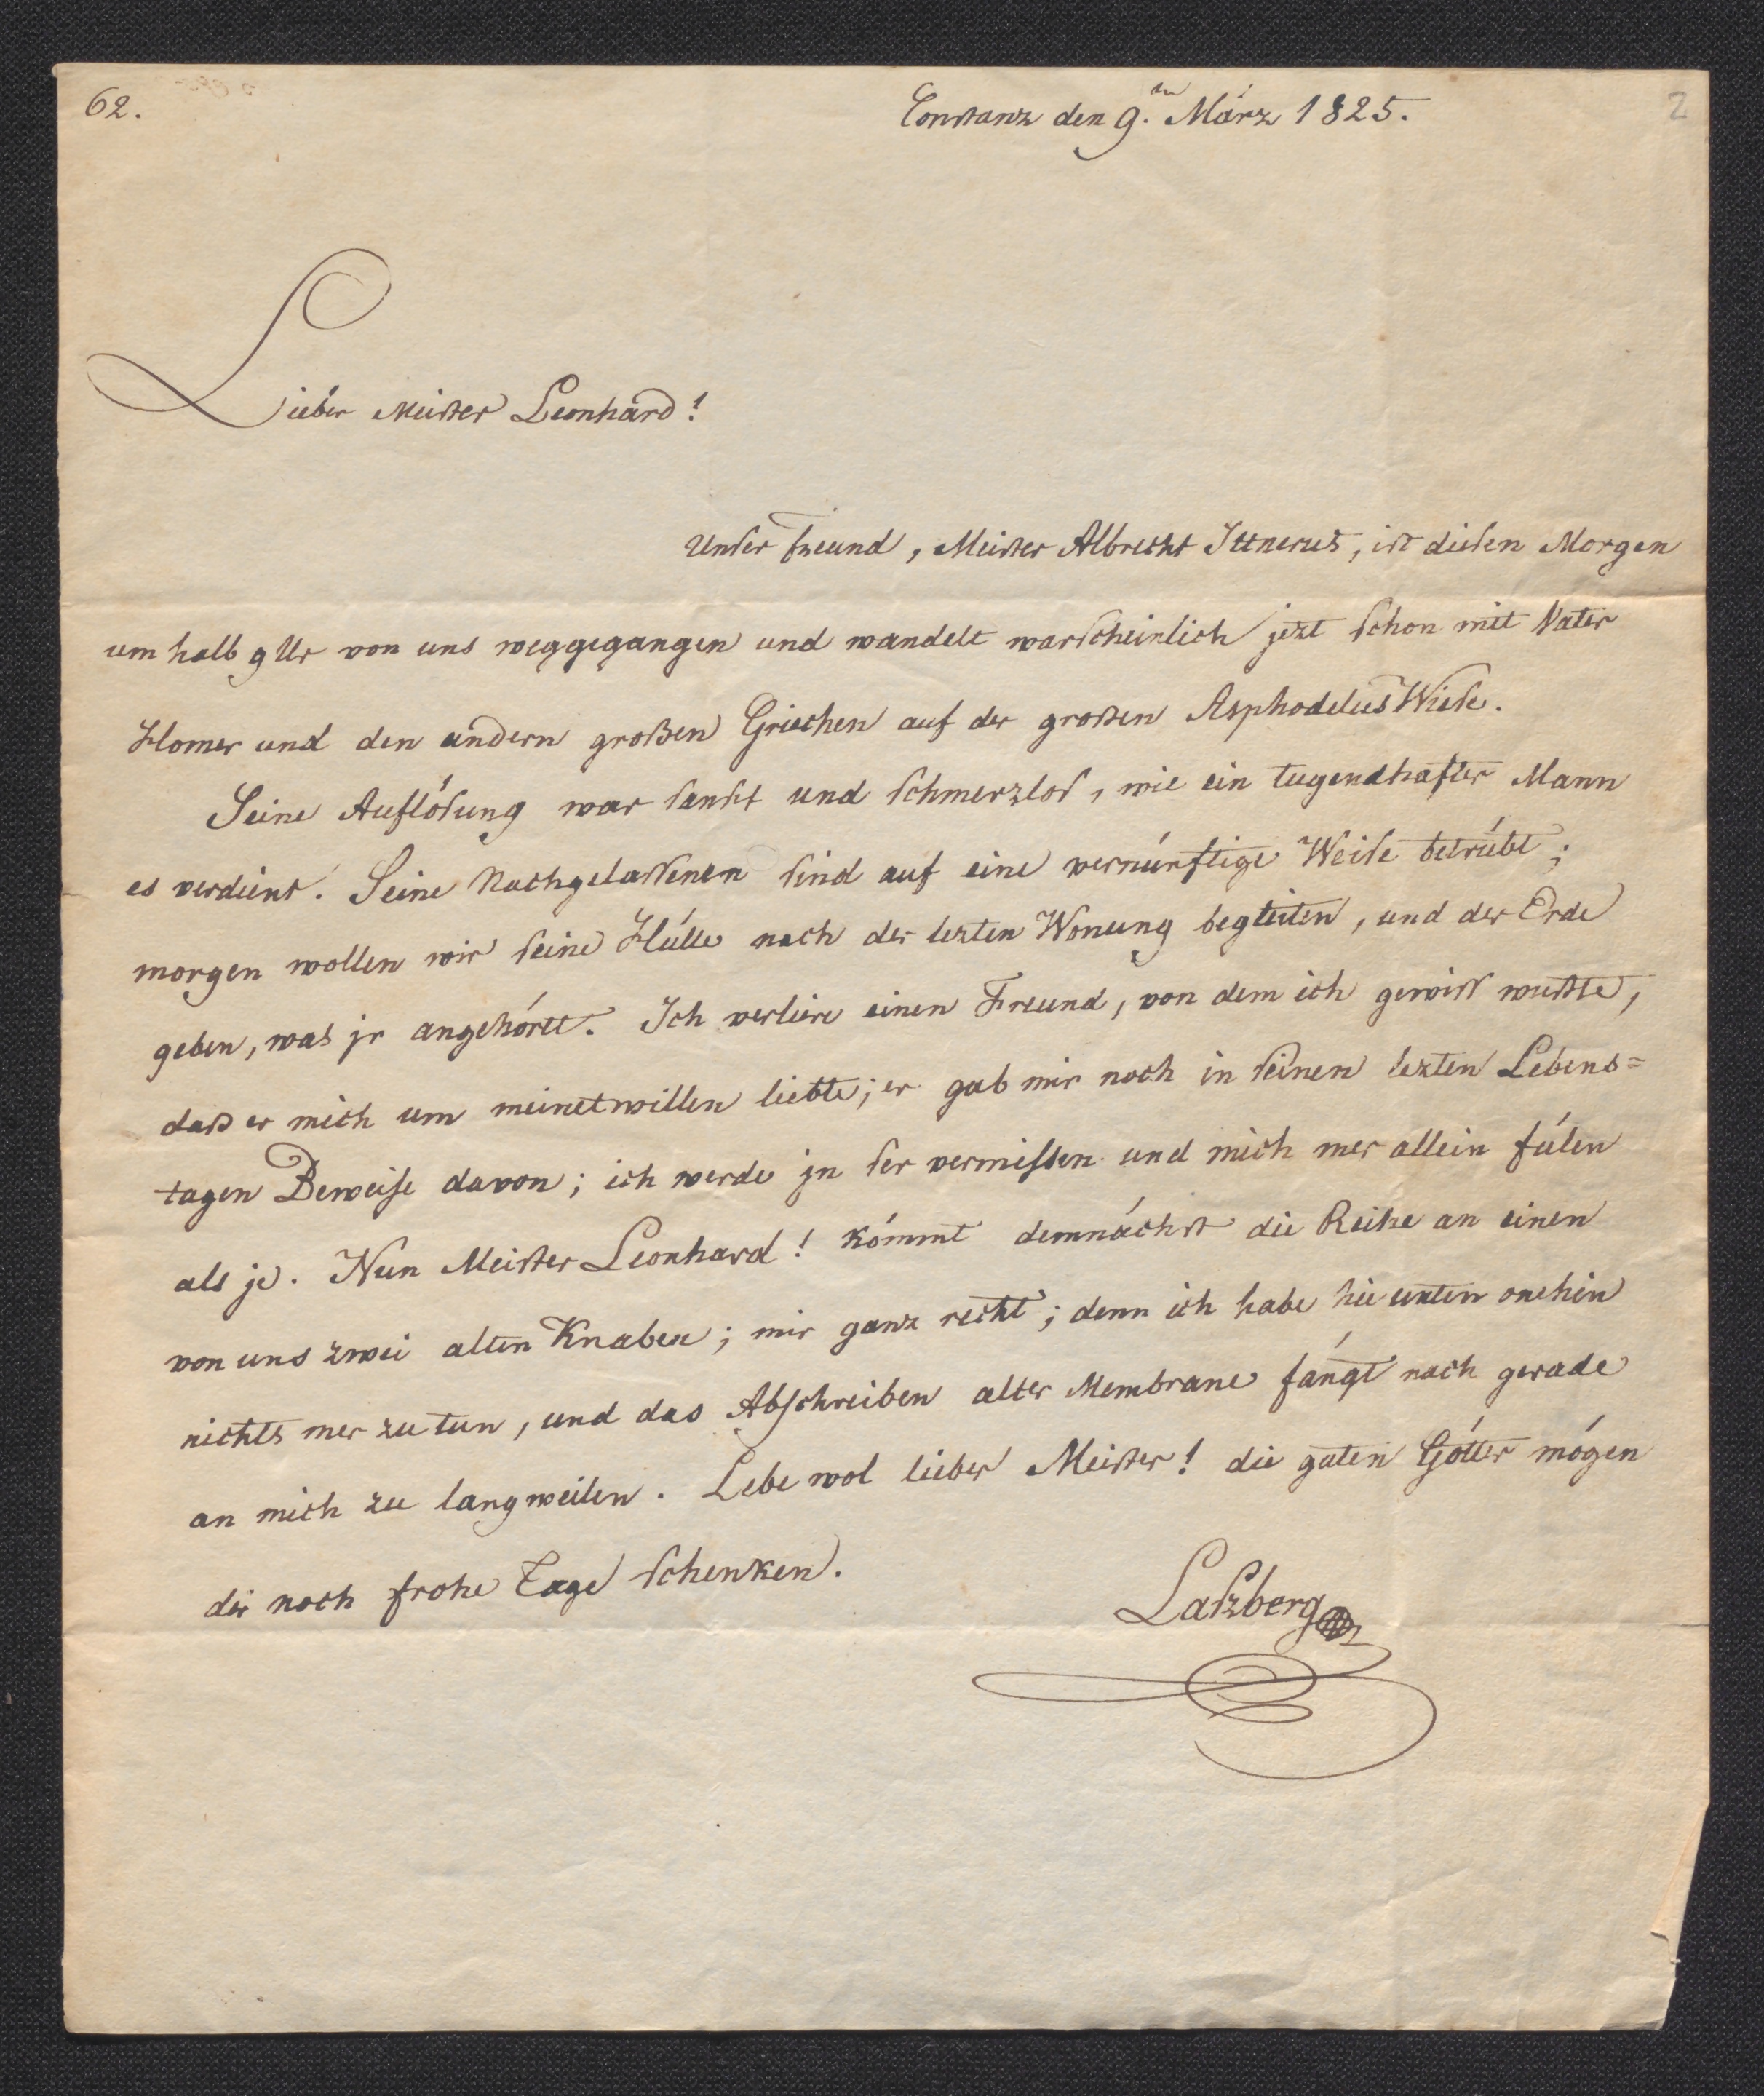 62.
Constanz den 9.ten März 1825.
2
Lieber Meister Leonhard!
Unser Freund, Meister Albrecht Ittnerus, ist diesen Morgen
um halb 9 Ur von uns weggegangen und wandelt warscheinlich jezt schon mit Vater
Homer und den andern großen Griechen auf der großen Asphodelus Wiese.
Seine Auflösung war sanft und schmerzlos, wie ein tugendhafter Mann
es verdient. Seine Nachgelassenen sind auf eine vernünftige Weise betrübt;
morgen wollen wir seine Hülle nach der lezten Wonung begleiten, und der Erde
geben, was jr angehört. Ich verliere einen Freund, von dem ich gewiss wusste,
daß er mich um meinetwillen liebte; er gab mir noch in seinen lezten Lebens=
tagen Beweise davon; ich werde jn ser vermissen und mich mer allein fülen
als je. Nun Meister Leonhard! kömmt demnächst die Reihe an einen
von uns zwei alten Knaben; mir ganz recht; denn ich habe hie unten onehin
nichts mer zu tun, und das Abschreiben alter Membrane fängt nach gerade
an mich zu langweilen. Lebe wol lieber Meister! die guten Götter mögen
dir noch frohe Tage schenken.
Laszberg